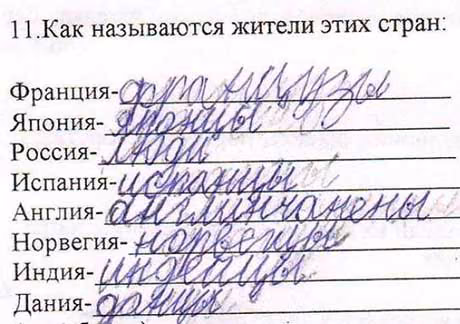 11.Как называются жители этих стран:
Франция-французы
Япония-японцы
Россия-люди
Испания-испанцы
Англия-англинчанены
Норвегия-норвещы
Индия-индейцы
Дания-данцы